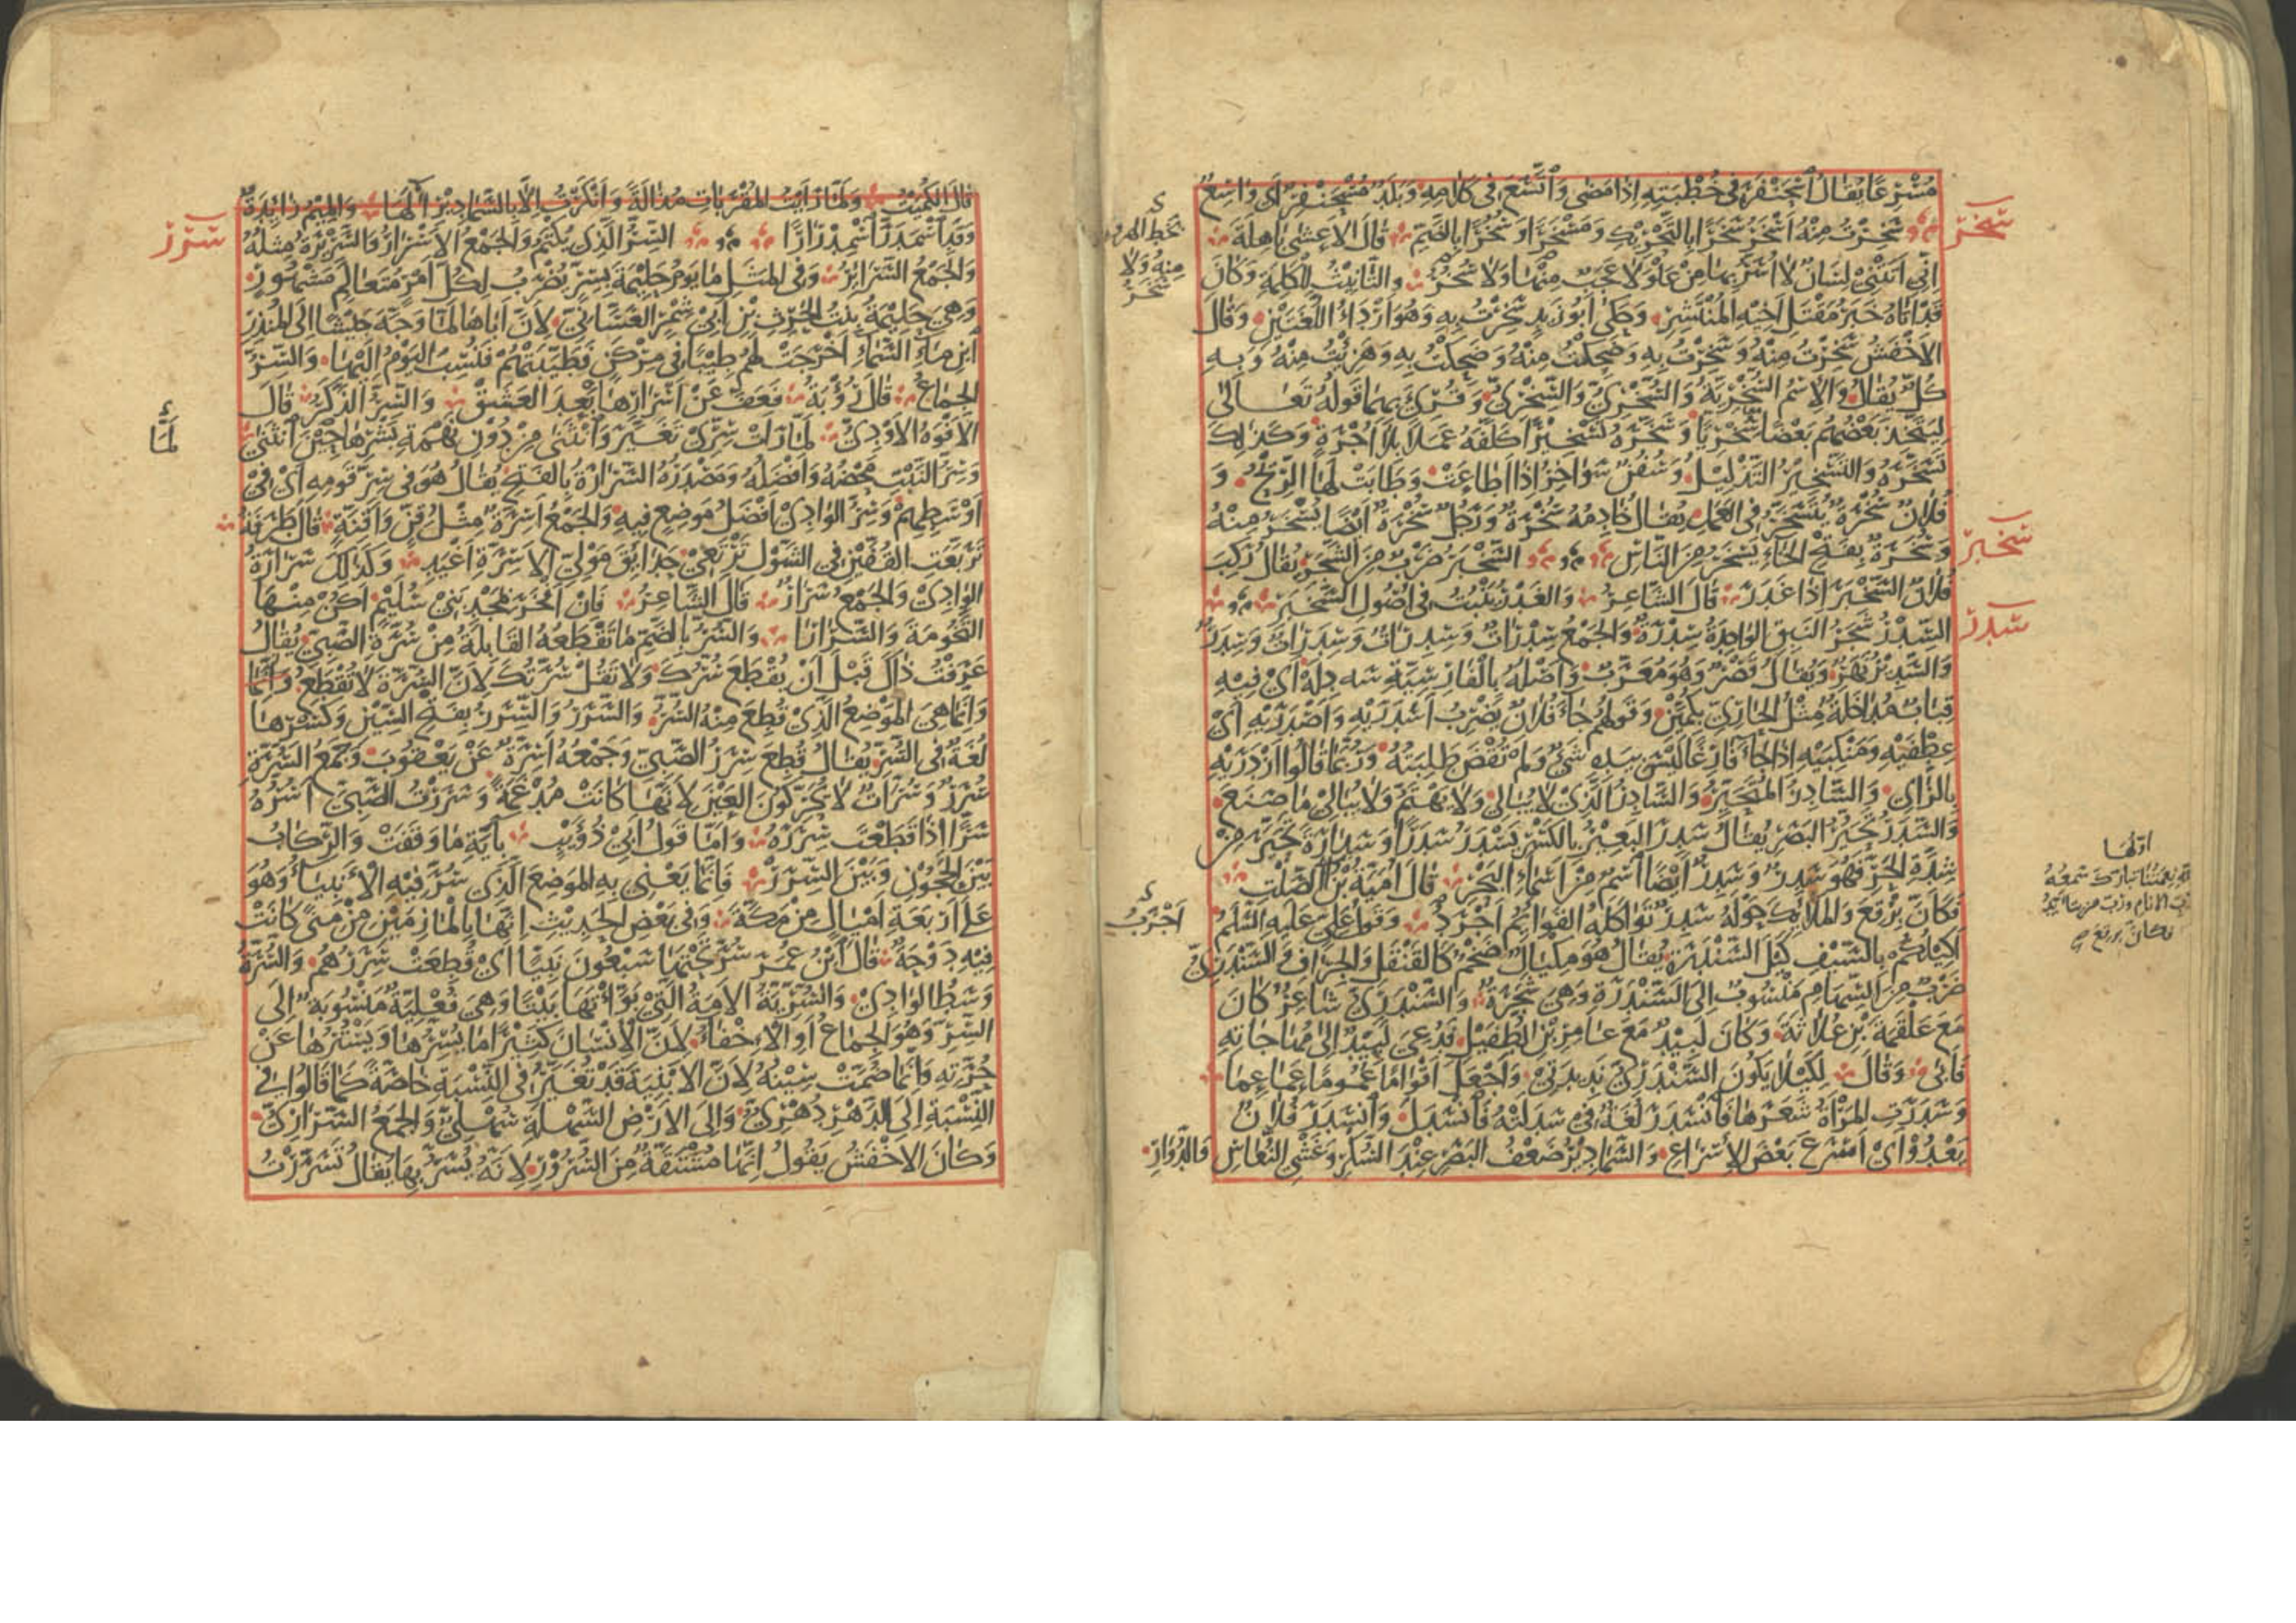 مُسْرِعًا يُقَالُ اسْحَنْفَرَ فِي خُطْبَتِهِ إِذَا مَضَى وَاتَّسَعَ فِي كَلَامِهِ وَبَلَدٌ مُسْحَنْفِرٌ أَي وَاسِعٌ
سخر
سَخِرْتُ مِنْهُ أَسْخَرُ سَخَرًا بِالتَّحْرِيكِ وَمَسْخَرًا وَسُخْرًا بِالضَّمِّ قَالَ الْأَعْشَى بَاهِلَةَ
إِنِّي أَتَتْنِي لِسَانٌ لَا أُسَرُّ بِهَا مِنْ عَلْوَ لَا عَجَبٌ مِنْهَا وَلَا سَخَرُ وَالتَّأْنِيثُ لِلْكَلِمَةِ وَكَانَ
قَدْ أَتَاهُ خَبَرُ مَقْتَلِ أَخِيهِ الْمُنْتَشِرِ وَحَكَى أَبُو زَيْدٍ سَخِرْتُ بِهِ وَهُوَ أَرْدَأُ اللُّغَتَيْنِ وَقَالَ
الْأَخْفَشُ سَخِرْتُ مِنْهُ وَسَخِرْتُ بِهِ وَضَحِكْتُ مِنْهُ وَضَحِكْتُ بِهِ وَهَزِئْتُ مِنْهُ وَبِهِ
كُلٌّ يُقَالُ وَالْاِسْمُ السُّخْرِيَّةُ وَالسُّخْرِيُّ وَالسِّخْرِيُّ وَقُرِئَ بِهِمَا قَوْلُهُ تَعَالَى
لِيَتَّخِذَ بَعْضُهُمْ بَعْضًا سُخْرِيًّا وَسَخَّرَهُ تَسْخِيرًا كَلَّفَهُ عَمَلًا بِلَا أُجْرَةٍ وَكَذَلِكَ
تَسَخَّرَهُ وَالتَّسْخِيرُ التَّذْلِيلُ وَسُفُنٌ سَوَاخِرُ إِذَا أَطَاعَتْ وَطَابَتْ لَهَا الرِّيحُ وَ
فُلَانٌ سُخْرَةٌ يُتَسَخَّرُ فِي الْعَمَلِ يُقَالُ خَادِمُهُ سُخْرَةٌ وَرَجُلٌ سُخْرَةٌ أَيْضًا يُسْخَرُ مِنْهُ
سخبر
وَسُخَرَةٌ بِفَتْحِ الْخَاءِ يَسْخَرُ مِنَ النَّاسِ السَّخْبَرُ ضَرْبٌ مِنَ الشَّجَرِ يُقَالُ رَكِبَ
فُلَانٌ السَّخْبَرَ إِذَا غَدَرَ قَالَ الشَّاعِرُ وَالْغَدْرُ يَنْبُتُ فِي أُصُولِ السَّخْبَرِ
سدر
السِّدْرُ شَجَرُ النَّبِقِ الْوَاحِدَةُ سِدْرَةٌ وَالْجَمْعُ سِدْرَاتٌ وَسِدِرَاتٌ وَسِدَرَاتٌ وَسِدَرٌ
وَالسَّدِيرُ نَهْرٌ وَيُقَالُ قَصْرٌ وَهُوَ مُعَرَّبٌ وَأَصْلُهُ بِالْفَارِسِيَّةِ سه دله أَيْ فِيهِ
قِبَابٌ مُدَاخَلَةٌ مِثْلُ الْحَارِيِّ بِكُمَّيْنِ وَقَوْلُهُمْ جَاءَ فُلَانٌ يَضْرِبُ أَسْدَرَيْهِ وَأَصْدَرَيْهِ أَيْ
عِطْفَيْهِ وَمَنْكِبَيْهِ إِذَا جَاءَ فَارِغًا لَيْسَ بِيَدِهِ شَيْءٌ وَلَمْ يَقْضِ طَلِبَتَهُ وَرُبَّمَا قَالُوا أَزْدَرَيْهِ
بِالزَّايِ وَالسَّادِرُ الْمُتَحَيِّرُ وَالسَّادِرُ الَّذِي لَا يُبَالِي وَلَا يَهْتَمُّ وَلَا يُبَالِي مَا صَنَعَ
وَالسَّدَرُ تَحَيُّرُ الْبَصَرِ يُقَالُ سَدِرَ الْبَعِيرُ بِالْكَسْرِ يَسْدَرُ سَدَرًا وَسَدَارَةً تَحَيَّرَ مِنْ
شِدَّةِ الْحَرِّ فَهُوَ سَدِرٌ وَسَدِرٌ أَيْضًا اسْمٌ مِنْ أَسْمَاءِ الْبَحْرِ قَالَ أُمَيَّةُ بْنُ الصَّلْتِ
فَكَأَنَّ بِرْقِعَ وَالْمَلَائِكَ حَوْلَهُ سَدِرٌ تَوَاكَلَهُ الْقَوَائِمُ أَجْرَدُ وَقَوْلُ عَلِيٍّ عَلَيْهِ السَّلَامُ
أَكِيلُكُمْ بِالسَّيْفِ كَيْلَ السَّنْدَرَةِ يُقَالُ هُوَ مِكْيَالٌ ضَخْمٌ كَالْقَنْقَلِ وَالْجُرَافِ وَالسَّنْدَرِيُّ
ضَرْبٌ مِنَ السِّهَامِ مَنْسُوبٌ إِلَى السَّنْدَرَةِ وَهِيَ شَجَرَةٌ وَالسَّنْدَرِيُّ شَاعِرٌ كَانَ
مَعَ عَلْقَمَةَ بْنِ عُلَاثَةَ وَكَانَ لَبِيدٌ مَعَ عَامِرِ بْنِ الطُّفَيْلِ فَدُعِيَ لَبِيدٌ إِلَى مُهَاجَاتِهِ
فَأَبَى وَقَالَ لِكَيْلَا يَكُونَ السَّنْدَرِيُّ نَدِيدَتِي وَأَجْعَلَ أَقْوَامًا عُمُومًا عَمَاعِمَا
وَسَدَرَتِ الْمَرْأَةُ شَعَرَهَا فَانْسَدَرَ لُغَةٌ فِي سَدَلَتْهُ فَانْسَدَلَ وَانْسَدَرَ فُلَانٌ
يَعْدُو أَيْ أَسْرَعَ بَعْضَ الْإِسْرَاعِ وَالسَّمَادِيرُ ضَعْفُ الْبَصَرِ عِنْدَ السُّكْرِ وَغَشْيِ النُّعَاسِ وَالدُّوَارِ
منه ولا
سخر
أَجْرَبُ
أولها
فكأن برقع
قَالَ الْكُمَيْتُ وَلَمَّا رَأَيْتُ الْمُقْرَبَاتِ مُذَالَةً وَأَنْكَرْتُ إِلَّا بِالسَّمَادِيرِ آلَهَا وَالْمِيمُ زَائِدَةٌ
سرر
وَقَدِ اسْمَدَرَّ اسْمِدْرَارًا السِّرُّ الَّذِي يُكْتَمُ وَالْجَمْعُ الْأَسْرَارُ وَالسَّرِيرَةُ مِثْلُهُ
وَالْجَمْعُ السَّرَائِرُ وَفِي الْمَثَلِ مَا يَوْمُ حَلِيمَةَ بِسِرٍّ يُضْرَبُ لِكُلِّ أَمْرٍ مُتَعَالَمٍ مَشْهُورٍ
وَهِيَ حَلِيمَةُ بِنْتُ الْحَرِثِ بْنِ أَبِي شَمِرٍ الْغَسَّانِيِّ لِأَنَّ أَبَاهَا لَمَّا وَجَّهَ جَيْشًا إِلَى الْمُنْذِرِ
ابْنِ مَاءِ السَّمَاءِ أَخْرَجَتْ لَهُمْ طِيبًا فِي مِرْكَنٍ فَطَيَّبَتْهُمْ فَنُسِبَ الْيَوْمُ إِلَيْهَا وَالسِّرُّ
الْجِمَاعُ قَالَ رُؤْبَةُ فَعَفَّ عَنْ أَسْرَارِهَا بَعْدَ الْعَسَقْ وَالسِّرُّ الذَّكَرُ قَالَ
الْأَفْوَهُ الْأَوْدِيُّ لَمَّا رَأَتْ سِرِّي تَغَيَّرَ وَانْثَنَى مِنْ دُونِ نَهْمَةِ بِشْرِهَا حِينَ انْثَنَى
لَمَّا
وَسِرُّ النَّسَبِ مَحْضُهُ وَأَفْضَلُهُ وَمَصْدَرُهُ السَّرَارَةُ بِالْفَتْحِ يُقَالُ هُوَ فِي سِرِّ قَوْمِهِ أَيْ فِي
أَوْسَطِهِمْ وَسِرُّ الْوَادِي أَفْضَلُ مَوْضِعٍ فِيهِ وَالْجَمْعُ أَسِرَّةٌ مِثْلُ قِنٍّ وَأَقِنَّةٍ قَالَ طَرَفَةُ
تَرَبَّعَتِ الْقُفَّيْنِ فِي الشَّوْلِ تَرْتَعِي حَدَائِقَ مَوْلِيِّ الْأَسِرَّةِ أَغْيَدِ وَكَذَلِكَ سَرَارَةُ
الْوَادِي وَالْجَمْعُ سَرَارٌ قَالَ الشَّاعِرُ فَإِنْ أَفْخَرْ بِمَجْدِ بَنِي سُلَيْمٍ أَكُنْ مِنْهَا
التَّخُومَةَ وَالسَّرَارَا وَالسُّرُّ بِالضَّمِّ مَا تَقْطَعُهُ الْقَابِلَةُ مِنْ سُرَّةِ الصَّبِيِّ يُقَالُ
عَرَفْتُ ذَاكَ قَبْلَ أَنْ يُقْطَعَ سُرُّكَ وَلَا تَقُلْ سُرَّتُكَ لِأَنَّ السُّرَّةَ لَا تُقْطَعُ وَإِنَّمَا
وَإِنَّمَا هِيَ الْمَوْضِعُ الَّذِي قُطِعَ مِنْهُ السُّرُّ وَالسَّرَرُ وَالسِّرَرُ بِفَتْحِ السِّينِ وَكَسْرِهَا
لُغَةٌ فِي السُّرِّ يُقَالُ قُطِعَ سَرَرُ الصَّبِيِّ وَجَمْعُهُ أَسِرَّةٌ عَنْ يَعْقُوبَ وَجَمْعُ السُّرَّةِ
سُرَرٌ وَسُرَّاتٌ لَا يُحَرِّكُونَ الْعَيْنَ لِأَنَّهَا كَانَتْ مُدْغَمَةً وَسَرَرْتُ الصَّبِيَّ أَسُرُّهُ
سَرًّا إِذَا قَطَعْتَ سِرَرَهُ وَأَمَّا قَوْلُ أَبِي ذُؤَيْبٍ بِآيَةِ مَا وَقَفَتْ وَالرِّكَابُ
بَيْنَ الْحَجُونِ وَبَيْنَ السِّرَرْ فَإِنَّمَا يَعْنِي بِهِ الْمَوْضِعَ الَّذِي سُرَّ فِيهِ الْأَنْبِيَاءُ وَهُوَ
عَلَى أَرْبَعَةِ أَمْيَالٍ مِنْ مَكَّةَ وَفِي بَعْضِ الْحَدِيثِ إِنَّهَا بِالْمَأْزِمَيْنِ مِنْ مِنًى كَانَتْ
فِيهِ دَوْحَةٌ قَالَ ابْنُ عُمَرَ سُرَّ تَحْتَهَا سَبْعُونَ نَبِيًّا أَيْ قُطِعَتْ سِرَرُهُمْ وَالسُّرَّةُ
وَسَطُ الْوَادِي وَالسُّرِّيَّةُ الْأَمَةُ الَّتِي بَوَّأْتَهَا بَيْتًا وَهِيَ فُعْلِيَّةٌ مَنْسُوبَةٌ إِلَى
السِّرِّ وَهُوَ الْجِمَاعُ أَوِ الْإِخْفَاءُ لِأَنَّ الْإِنْسَانَ كَثِيرًا مَا يُسِرُّهَا وَيَسْتُرُهَا عَنْ
حُرَّتِهِ وَإِنَّمَا ضُمَّتْ سِينُهُ لِأَنَّ الْأَبْنِيَةَ قَدْ تُغَيَّرُ فِي النِّسْبَةِ خَاصَّةً كَمَا قَالُوا فِي
النِّسْبَةِ إِلَى الدَّهْرِ دُهْرِيٌّ وَإِلَى الْأَرْضِ السَّهْلَةِ سُهْلِيٌّ وَالْجَمْعُ السَّرَارِيُّ
وَكَانَ الْأَخْفَشُ يَقُولُ إِنَّهَا مُشْتَقَّةٌ مِنَ السُّرُورِ لِأَنَّهُ يُسَرُّ بِهَا يُقَالُ تَسَرَّرْتُ